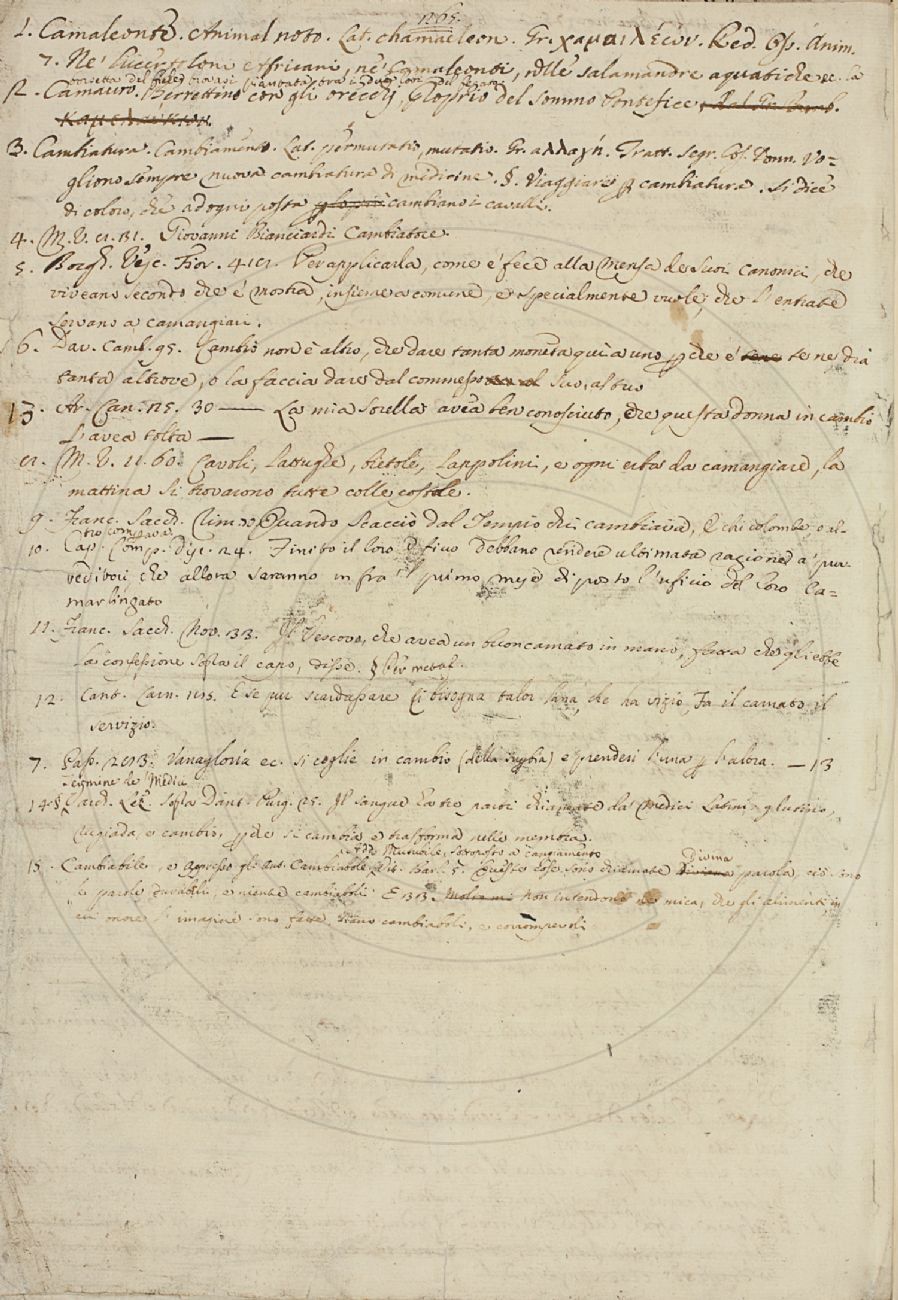 1265.
1. Camaleonte. Animal noto. Lat. chamaeleon. Gr. χαμαιλέων. Red. Os. Anim.
7. Nè lucertoloni affricani, nè Camaleonti, nelle salamandre aquatiche ec. la
2. Camauro. Berrettino con gli orecchi, proprio del sommo Pontefice
Καμελαύκιον.
3. Cambiatura. Cambiamento. Lat. permutatio, mutatio. Gr. αλλαγή. Tratt. segr. cos. donn. Vo=
gliono sempre nuova cambiatura di medicine. §. Viaggiare p cambiatura. si dice
di coloro, che ad ogni posta cambiano i cavalli.
4. M. V. 11. 131. Giovanni Bianciardi Cambiatore.
5. Borgh. Vesc. Fior. 4 Per applicarla, come e' fece alla Mensa de suoi canonici, che
viveano secondo che è mostra, insieme a comune, e specialmente vuole, che l'entrate
servano a camangiari.
6. Dav. Camb. 95. Cambio non è altro, che dare tanta moneta quì a uno pche e' te ne dia
tanta altrove, o la faccia dare dal commesso suo, al tuo
13. Ar. Can. 25. 30 — La mia sorella avea ben conosciuto, che questa donna in cambio
l'avea tolta —
M. V. 11. 60. Cavoli, lattughe, bietole, lappolini, e ogni erba da camangiare, la
mattina si trovarono tutte colle costole.
9. Franc. Sacch. rim. 30 Quando scacciò dal Tempio chi cambiava, E chi colombe, o al-
tro comperava
10. Cap. Comp. disc. 24. Finito il loro ufficio debbano rendere ultimata ragione a' prov-
veditori, che allora saranno in fra 'l primo mese diposto l'uficio del loro Ca=
marlingato
11. Franc. Sacch. Nov. 33. Il Vescovo, che avea un buon camato in mano, fatta che gliebbe
la confessione sopra il capo, disse. § Per metaf.
12. Cant. Carn. 115. E se pur scardassare Ci bisogna talor lana, che ha vizio, Fa il camato il
servizio.
7. Pass. 203. Vanagloria ec. si coglie in cambio (della supbia) e prendesi l'una p l'altra. — 13
Termine de' Medici
14. § Vared. Lez. sopra Dant. Purg. 25. Il sangue ha tre parti chiamate da' Medici Latini glutino,
rugiada, e cambio, pche si cambia e trasforma nelle membra.
Add. Mutabile, sottoposto a cangiamento
15. Cambiabile, e appresso gli ant. Cambiabole Vit. Barl. 5. Queste cose sono chiamate Divina parola, ciò sono
le parole durabili, e niente cambiabili. E 33. Non intendono mica, che gli alimenti in
cui onore l'imagine sono fatte, sieno cambiabili, e corrompevoli